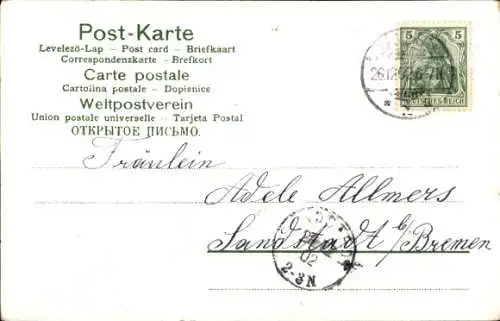 Post-Karte
Levelező-Lap – Post card – Briefkaart
Correspondenzkarte – Brefkort
Carte postale
Cartolina postale – Dopisnice
Weltpostverein
Union postale universelle – Tarjeta Postal
ОТКРЫТОЕ ПИСЬМО.
5 5
DEUTSCHES REICH
Fräulein
Adele Allmers
Sandstadt b/ Bremen
02
2-3N